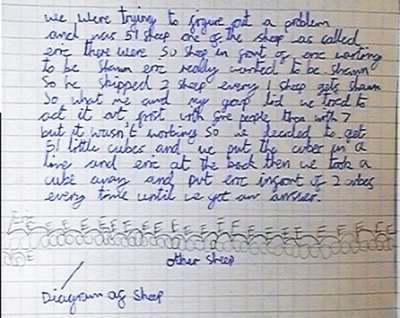 we were trying to figure out a problem
and was 51 sheep one of the sheep was called
eric there were 50 sheep in front of eric waiting
to be shawn eric really wanted to be shawn
So he skipped 2 sheep every 1 sheep gets shawn
So what me and my goup did we tried to
act it out first with five people than with 7
but it wasn't working So we decided to get
51 little cubes and we put the cubes in a
line and eric at the back then we took a
cube away and put eric infront of 2 cubes
every time until we got our answer.
other sheep
Diagram of sheep